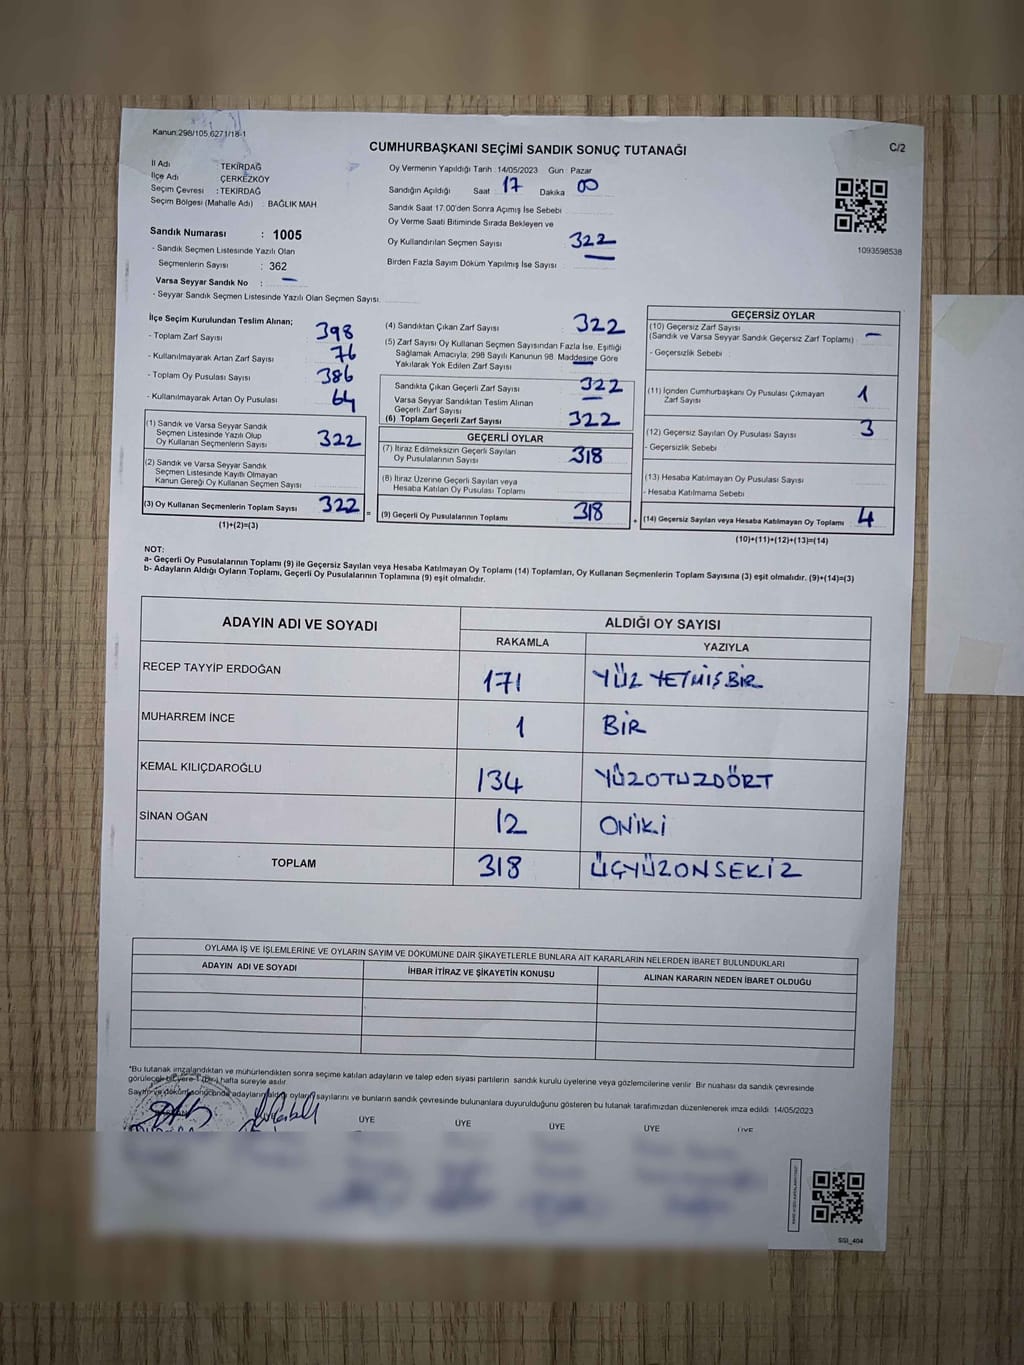 Kanun:298/105,6271/18-1
C/2
CUMHURBAŞKANI SEÇİMİ SANDIK SONUÇ TUTANAĞI
İl Adı : TEKİRDAĞ
İlçe Adı : ÇERKEZKÖY
Seçim Çevresi : TEKİRDAĞ
Seçim Bölgesi (Mahalle Adı) : BAĞLIK MAH
Sandık Numarası : 1005
- Sandık Seçmen Listesinde Yazılı Olan
Seçmenlerin Sayısı : 362
Varsa Seyyar Sandık No : –
- Seyyar Sandık Seçmen Listesinde Yazılı Olan Seçmen Sayısı:
Oy Vermenin Yapıldığı Tarih : 14/05/2023 Gün : Pazar
Sandığın Açıldığı Saat 17 Dakika 00
Sandık Saat 17:00'den Sonra Açılmış İse Sebebi
Oy Verme Saati Bitiminde Sırada Bekleyen ve
Oy Kullandırılan Seçmen Sayısı 322
Birden Fazla Sayım Döküm Yapılmış İse Sayısı
1093598538
İlçe Seçim Kurulundan Teslim Alınan;
- Toplam Zarf Sayısı 398
- Kullanılmayarak Artan Zarf Sayısı 76
- Toplam Oy Pusulası Sayısı 386
- Kullanılmayarak Artan Oy Pusulası 64
(1) Sandık ve Varsa Seyyar Sandık
Seçmen Listesinde Yazılı Olup
Oy Kullanan Seçmenlerin Sayısı 322
(2) Sandık ve Varsa Seyyar Sandık
Seçmen Listesinde Kayıtlı Olmayan
Kanun Gereği Oy Kullanan Seçmen Sayısı
(3) Oy Kullanan Seçmenlerin Toplam Sayısı 322
(1)+(2)=(3)
=
(4) Sandıktan Çıkan Zarf Sayısı 322
(5) Zarf Sayısı Oy Kullanan Seçmen Sayısından Fazla İse, Eşitliği
Sağlamak Amacıyla; 298 Sayılı Kanunun 98. Maddesine Göre
Yakılarak Yok Edilen Zarf Sayısı –
Sandıkta Çıkan Geçerli Zarf Sayısı 322
Varsa Seyyar Sandıktan Teslim Alınan
Geçerli Zarf Sayısı –
(6) Toplam Geçerli Zarf Sayısı 322
GEÇERLİ OYLAR
(7) İtiraz Edilmeksizin Geçerli Sayılan
Oy Pusulalarının Sayısı 318
(8) İtiraz Üzerine Geçerli Sayılan veya
Hesaba Katılan Oy Pusulası Toplamı
(9) Geçerli Oy Pusulalarının Toplamı 318
+
GEÇERSİZ OYLAR
(10) Geçersiz Zarf Sayısı
(Sandık ve Varsa Seyyar Sandık Geçersiz Zarf Toplamı) –
- Geçersizlik Sebebi :
(11) İçinden Cumhurbaşkanı Oy Pusulası Çıkmayan
Zarf Sayısı 1
(12) Geçersiz Sayılan Oy Pusulası Sayısı 3
- Geçersizlik Sebebi
(13) Hesaba Katılmayan Oy Pusulası Sayısı
- Hesaba Katılmama Sebebi
(14) Geçersiz Sayılan veya Hesaba Katılmayan Oy Toplamı 4
(10)+(11)+(12)+(13)=(14)
NOT:
a- Geçerli Oy Pusulalarının Toplamı (9) ile Geçersiz Sayılan veya Hesaba Katılmayan Oy Toplamı (14) Toplamları, Oy Kullanan Seçmenlerin Toplam Sayısına (3) eşit olmalıdır. (9)+(14)=(3)
b- Adayların Aldığı Oyların Toplamı, Geçerli Oy Pusulalarının Toplamına (9) eşit olmalıdır.
ADAYIN ADI VE SOYADI ALDIĞI OY SAYISI
RAKAMLA YAZIYLA
RECEP TAYYİP ERDOĞAN 171 YÜZ YETMİŞBİR
MUHARREM İNCE 1 BİR
KEMAL KILIÇDAROĞLU 134 YÜZOTUZDÖRT
SİNAN OĞAN 12 ONİKİ
TOPLAM 318 ÜÇYÜZONSEKİZ
OYLAMA İŞ VE İŞLEMLERİNE VE OYLARIN SAYIM VE DÖKÜMÜNE DAİR ŞİKAYETLERLE BUNLARA AİT KARARLARIN NELERDEN İBARET BULUNDUKLARI
ADAYIN ADI VE SOYADI İHBAR İTİRAZ VE ŞİKAYETİN KONUSU ALINAN KARARIN NEDEN İBARET OLDUĞU
*Bu tutanak imzalandıktan ve mühürlendikten sonra seçime katılan adayların ve talep eden siyasi partilerin sandık kurulu üyelerine veya gözlemcilerine verilir. Bir nüshası da sandık çevresinde
görülecek bir yere 1 (bir) hafta süreyle asılır.
Sayım ve döküm sonucunda adayların aldığı oyların sayılarını ve bunların sandık çevresinde bulunanlara duyurulduğunu gösteren bu tutanak tarafımızdan düzenlenerek imza edildi. 14/05/2023
ÜYE ÜYE ÜYE ÜYE ÜYE
SSI_404